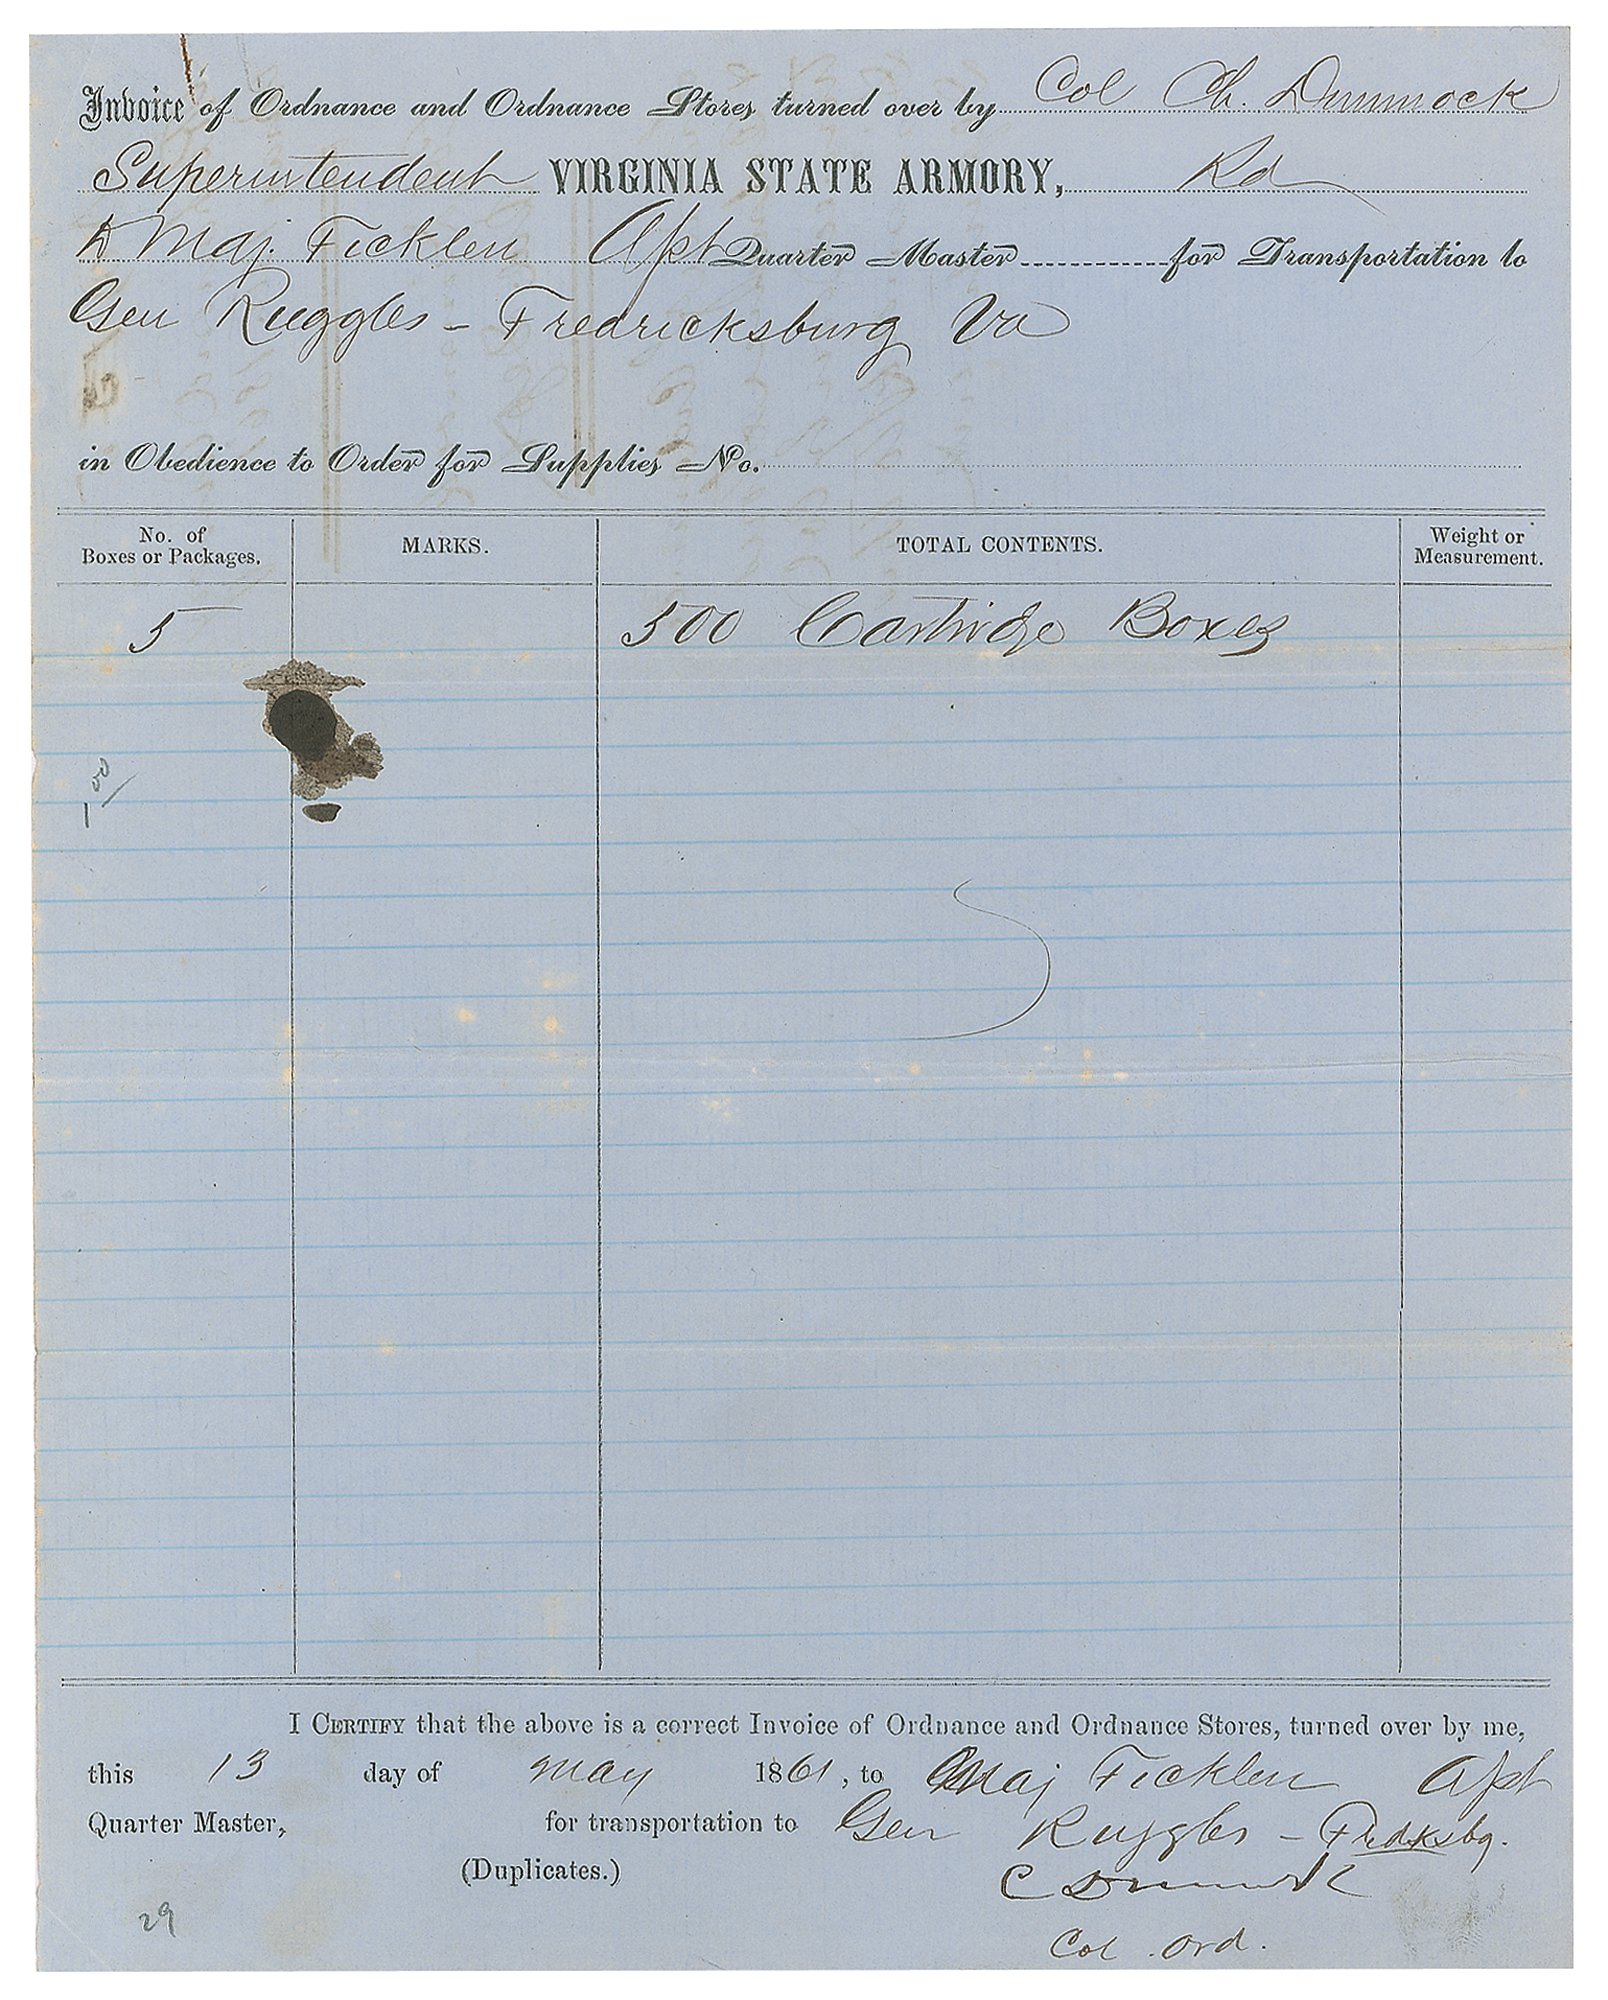 Invoice of Ordnance and Ordnance Stores turned over by Col Ch. Dimmock
Superintendent VIRGINIA STATE ARMORY, Rd
to Maj. Ficklen Asst Quarter Master for Transportation to
Gen Ruggles - Fredricksburg Va
in Obedience to Order for Supplies No.
No. of
Boxes or Packages. MARKS. TOTAL CONTENTS. Weight or
Measurement.
5 500 Cartridge Boxes
1 00
I CERTIFY that the above is a correct Invoice of Ordnance and Ordnance Stores, turned over by me,
this 13 day of may 1861, to Maj Ficklen Asst
Quarter Master, for transportation to Gen Ruggles - Fredksbg.
(Duplicates.) C Dimmock
29
Col. Ord.